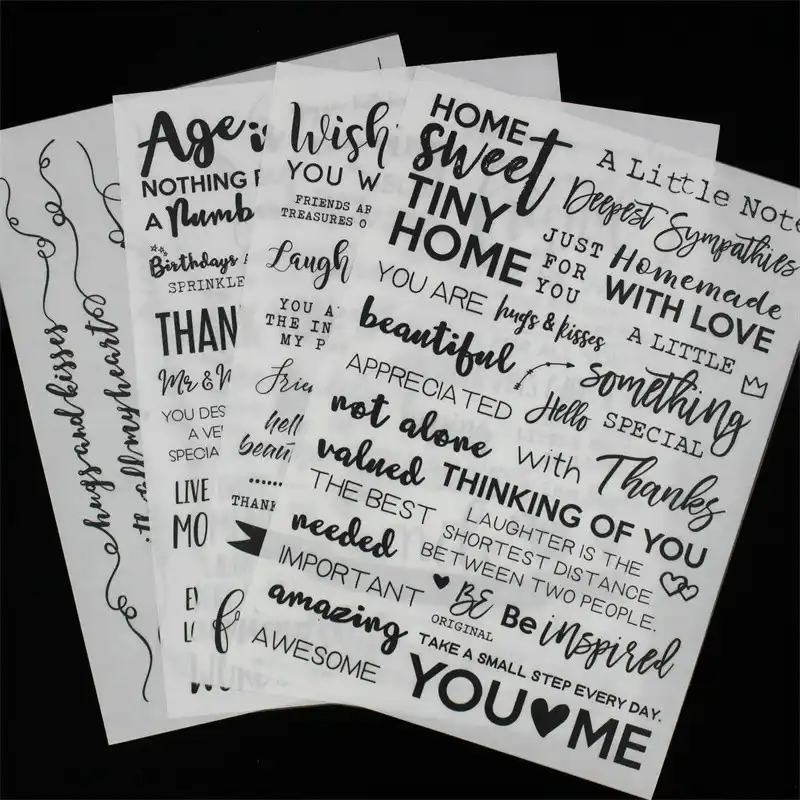 hugs and kisses
all my heart
Age
NOTHING
A Numb
Birthdays
SPRINKLE
THAN
Mr & M
YOU DES
A VE
SPECIA
LIVE
MO
Wish
YOU W
FRIENDS AR
TREASURES O
Laugh
YOU A
THE IN
MY P
Frie
hell
beau
THANK
HOME
sweet
TINY
HOME
A Little Note
Deepest Sympathies
JUST
FOR
YOU
Homemade
WITH LOVE
YOU ARE
hugs & kisses
A LITTLE
something
SPECIAL
beautiful
APPRECIATED
Hello
not alone
with Thanks
valued
THINKING OF YOU
THE BEST
LAUGHTER IS THE
SHORTEST DISTANCE
BETWEEN TWO PEOPLE.
needed
IMPORTANT
BE
ORIGINAL
Be inspired
amazing
AWESOME
TAKE A SMALL STEP EVERY DAY.
YOU♥ME